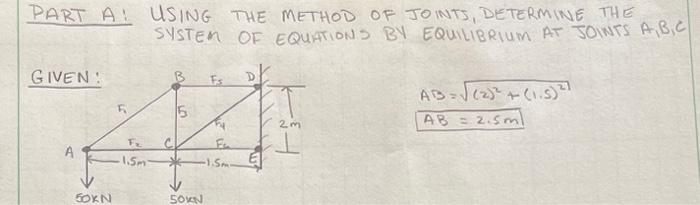 PART A: USING THE METHOD OF JOINTS, DETERMINE THE
SYSTEM OF EQUATIONS BY EQUILIBRIUM AT JOINTS A,B,C
GIVEN:
B F5 D
AB = √(2)² + (1.5)²
F1
F4
2m
AB = 2.5m
A F2 C F6 E
1.5m 1.5m
50KN 50KN